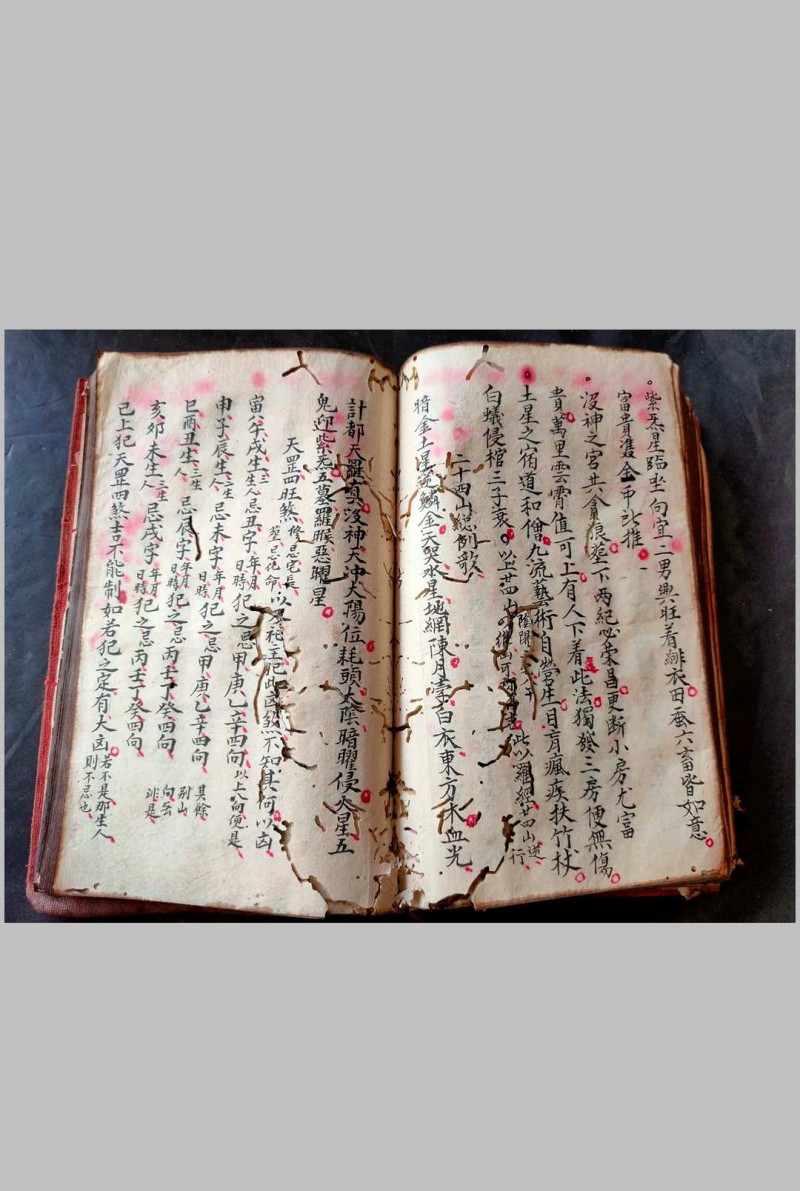 紫炁星臨坐向宜二男興旺着緋衣田蚕六畜皆如意
富貴雙金帛此推
沒神之宮共貪狼塟下兩紀必榮昌更断小房尤富
貴萬里雲霄值可上有人下着此法獨發三房便無傷
土星之宿道和僧九流藝術自營生目肓瘋疾扶竹杖
白蟻侵棺三子衰以上廿四山此以羅經廿四山逆行
二十四山総例歌
暗金土星麟金天哭水星地網陳月孛白衣東方木血光
計都天羅真沒神天沖太陽位耗頭太陰暗曜侵火星五
鬼迎紫炁五墓羅睺惡曜星
天罡四旺煞修忌宅長塟忌化命以及祀主犯此凶煞不知其何以凶
寅午戌生三生人忌丑字年月日時犯之忌甲庚乙辛四向以上八向便是
申子辰生人三生忌未字年月日時犯之忌甲庚乙辛四向其餘
巳酉丑生人三生忌辰字年月日時犯之忌丙壬丁癸四向別山向云
亥卯未生人三生忌戌字年月日時犯之忌丙壬丁癸四向誹是
已上犯天罡四煞吉不能制如若犯之定有大凶若不是那生人則不忌也